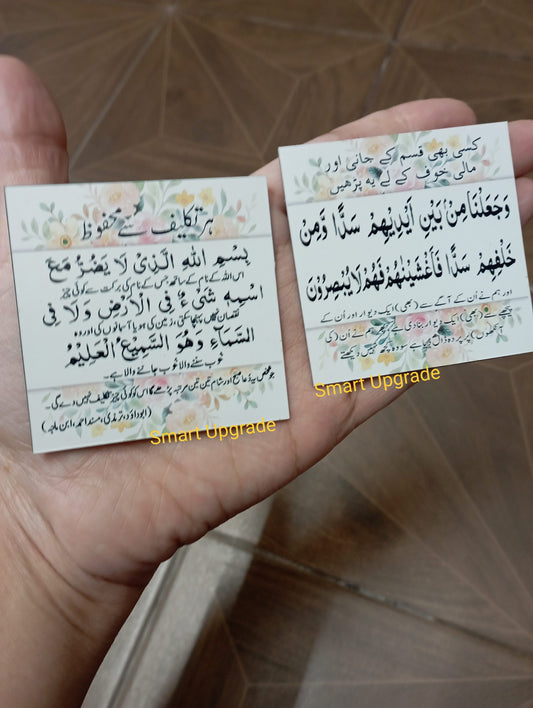 ہر تکلیف سے محفوظ
بِسْمِ اللهِ الَّذِیْ لَا یَضُرُّ مَعَ
اس اللہ کے نام کے ساتھ جس کے نام کی برکت سے کوئی چیز
اسْمِهٖ شَیْءٌ فِی الْاَرْضِ وَلَا فِی
نقصان نہیں پہنچا سکتی، زمین کی ہو یا آسمانوں کی اور وہ
السَّمَآءِ وَهُوَ السَّمِیْعُ الْعَلِیْمُ
خوب سننے والا خوب جاننے والا ہے۔
جو شخص یہ دعا صبح اور شام تین تین مرتبہ پڑھے گا اس کو کوئی چیز تکلیف نہیں دے گی۔
(ابوداؤد، ترمذی، مسند احمد، ابن ماجہ)
Smart Upgrade
کسی بھی قسم کے جانی اور
مالی خوف کے لے یہ پڑھیں
وَجَعَلْنَا مِنْۢ بَیْنِ اَیْدِیْهِمْ سَدًّا وَّمِنْ
خَلْفِهِمْ سَدًّا فَاَغْشَیْنٰهُمْ فَهُمْ لَا یُبْصِرُوْنَ
اور ہم نے اُن کے آگے سے (بھی) ایک دیوار اور اُن کے
پیچھے سے (بھی) ایک دیوار بنا دی ہے پھر ہم نے اُن (کی
آنکھوں) پر پردہ ڈال دیا ہے سو وہ کچھ نہیں دیکھتے
Smart Upgrade